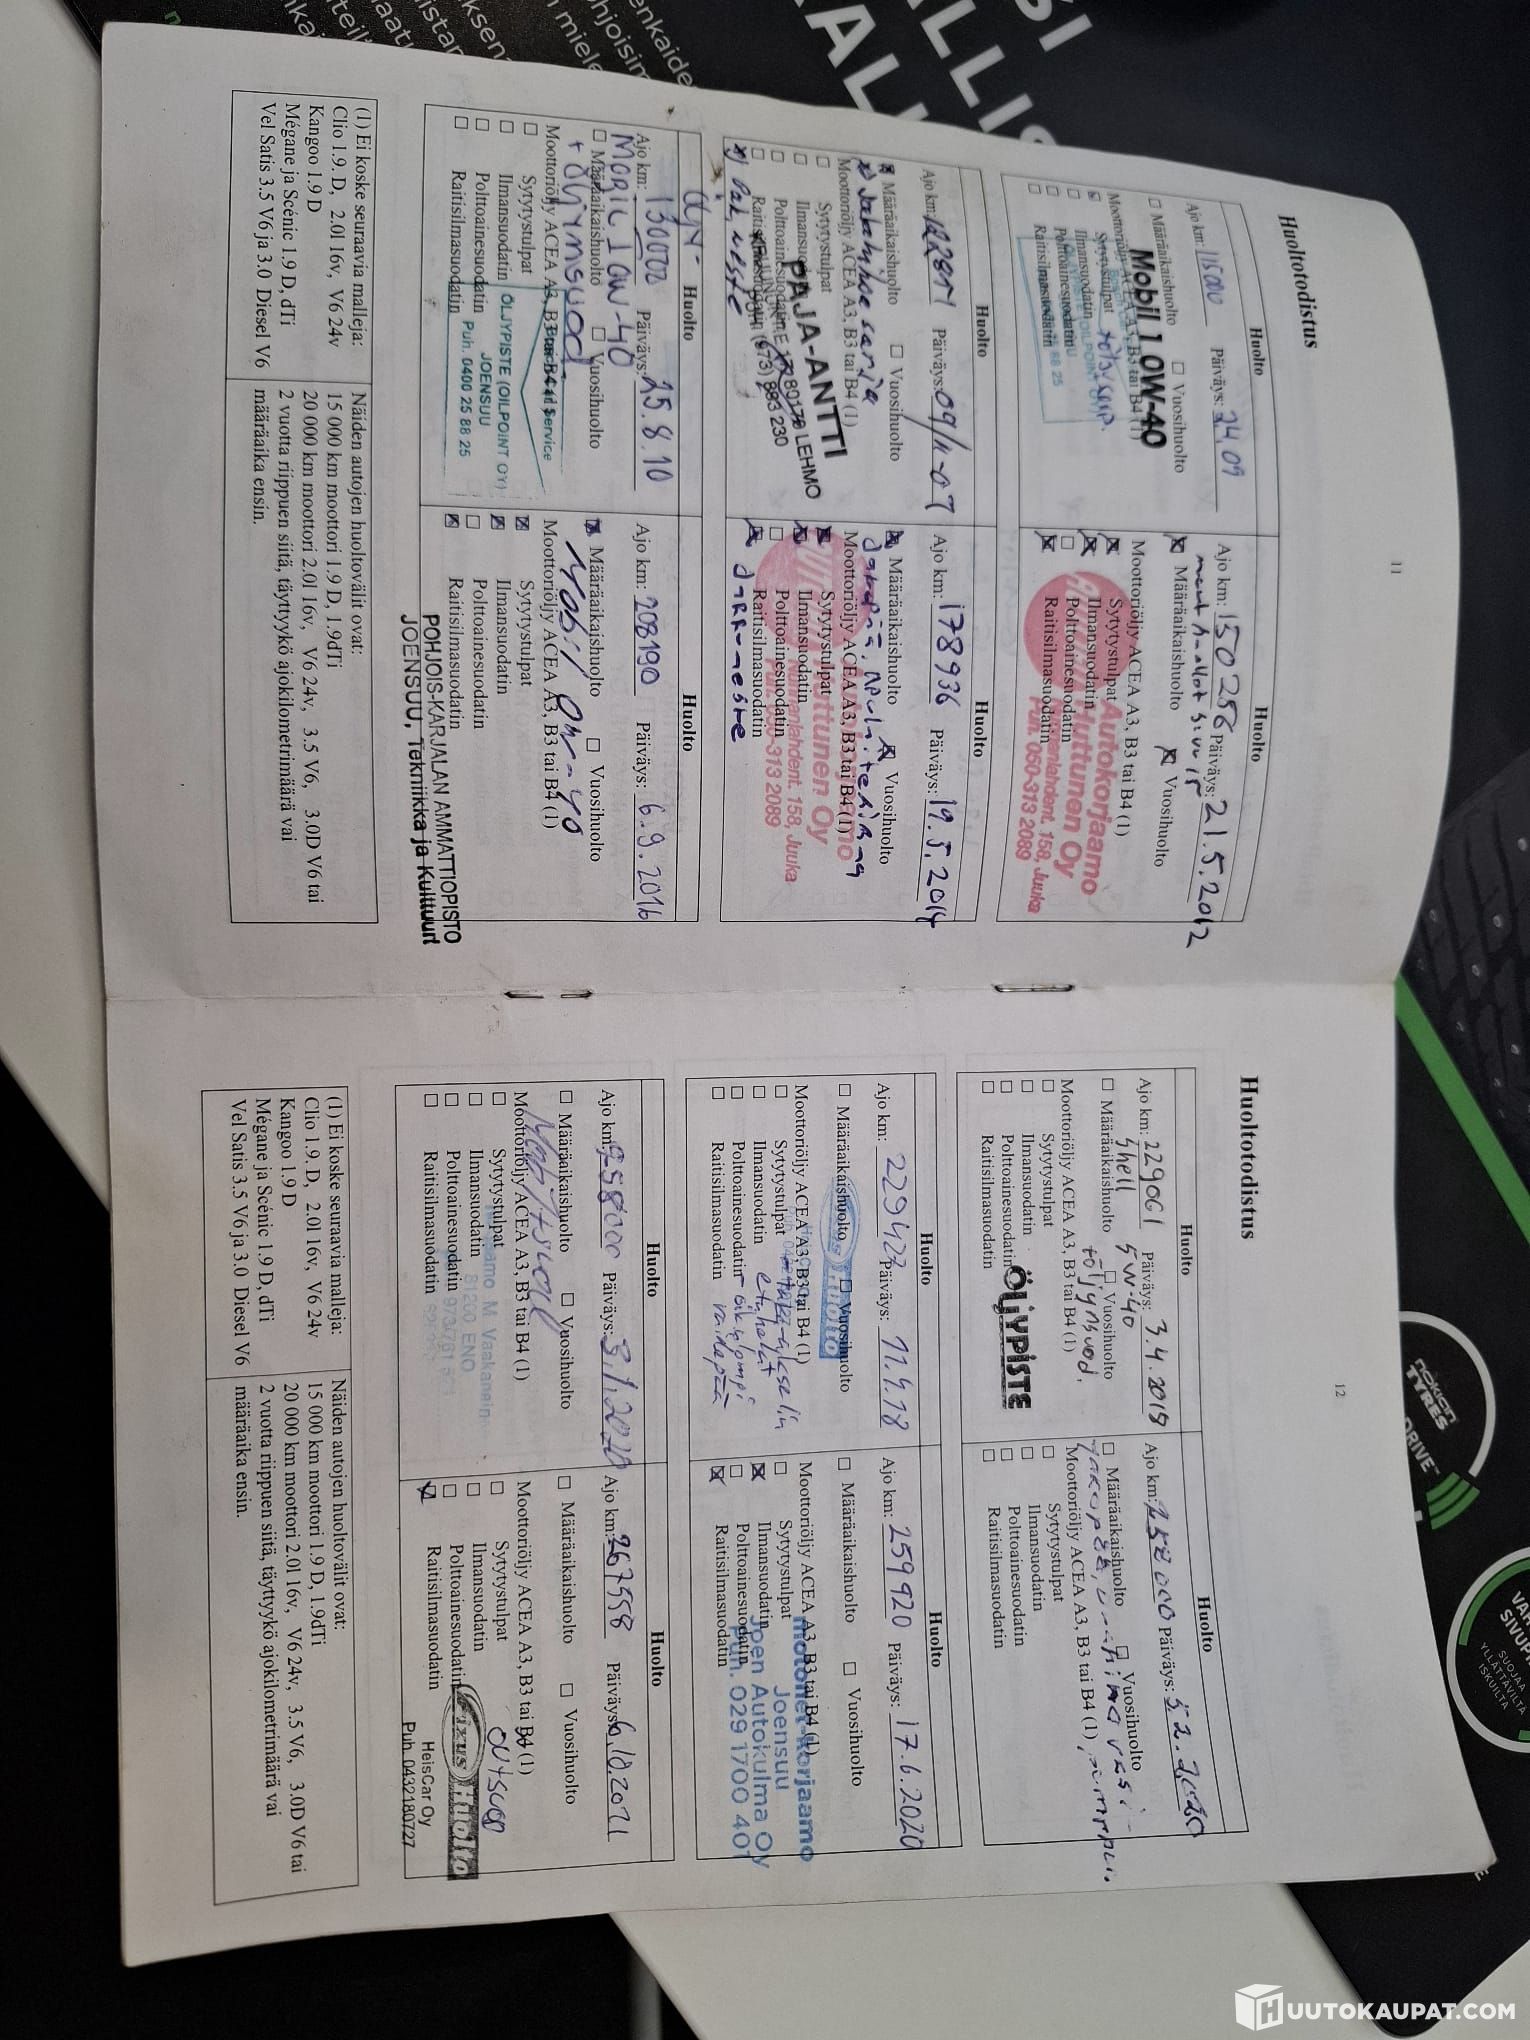 Huoltotodistus
11
Huolto
Ajo km: 115000 Päiväys: 24.09
Määräaikaishuolto Vuosihuolto
Mobil 1 0W-40
Moottoriöljy ACEA A3, B3 tai B4 (1)
Sytytystulpat
Ilmansuodatin
Polttoainesuodatin
Raitisilmasuodatin
Huolto
Ajo km: 150256 Päiväys: 21.5.2012
Määräaikaishuolto Vuosihuolto
Moottoriöljy ACEA A3, B3 tai B4 (1)
Sytytystulpat
Ilmansuodatin
Polttoainesuodatin
Raitisilmasuodatin
Autokorjaamo
Huttunen Oy
Niinenlahdent. 158, Juuka
Puh. 050-313 2089
Huolto
Ajo km: Päiväys: 09/11-07
Määräaikaishuolto Vuosihuolto
x) Jakohihnasarja
Moottoriöljy ACEA A3, B3 tai B4 (1)
Sytytystulpat
Ilmansuodatin
Polttoainesuodatin
Raitisilmasuodatin
PAJA-ANTTI
80170 LEHMO
(973) 883 230
Huolto
Ajo km: 178936 Päiväys: 19.5.2014
Määräaikaishuolto Vuosihuolto
Moottoriöljy ACEA A3, B3 tai B4 (1)
Sytytystulpat
Ilmansuodatin
Polttoainesuodatin
Raitisilmasuodatin
Jarruneste
Huttunen Oy
Niinenlahdent. 158, Juuka
Puh. 050-313 2089
Huolto
Ajo km: 130000 Päiväys: 25.8.10
Mobil 1 0W-40
Määräaikaishuolto Vuosihuolto
+ öljynsuod
Moottoriöljy ACEA A3, B3 tai B4 (1)
Sytytystulpat
Ilmansuodatin
Polttoainesuodatin
Raitisilmasuodatin
ÖLJYPISTE (OILPOINT OY)
JOENSUU
Puh. 0400 25 88 25
Huolto
Ajo km: 208190 Päiväys: 6.9.2016
Määräaikaishuolto Vuosihuolto
Mobil 0W-40
Moottoriöljy ACEA A3, B3 tai B4 (1)
Sytytystulpat
Ilmansuodatin
Polttoainesuodatin
Raitisilmasuodatin
POHJOIS-KARJALAN AMMATTIOPISTO
JOENSUU, Tekniikka ja Kulttuuri
(1) Ei koske seuraavia malleja:
Clio 1.9. D, 2.0l 16v, V6 24v
Kangoo 1.9 D
Mégane ja Scénic 1.9 D, dTi
Vel Satis 3.5 V6 ja 3.0 Diesel V6
Näiden autojen huoltovälit ovat:
15 000 km moottori 1.9 D, 1.9dTi
20 000 km moottori 2.0l 16v, V6 24v, 3.5 V6, 3.0D V6 tai
2 vuotta riippuen siitä, täyttyykö ajokilometrimäärä vai
määräaika ensin.
Huoltotodistus
12
Huolto
Ajo km: 229061 Päiväys: 3.4.2018
Shell 5W-40
Määräaikaishuolto Vuosihuolto
+öljynsuod.
Moottoriöljy ACEA A3, B3 tai B4 (1)
Sytytystulpat
Ilmansuodatin
Polttoainesuodatin
Raitisilmasuodatin
ÖLJYPISTE
Huolto
Ajo km: 258000 Päiväys: 5.2.2020
Määräaikaishuolto Vuosihuolto
Moottoriöljy ACEA A3, B3 tai B4 (1)
Sytytystulpat
Ilmansuodatin
Polttoainesuodatin
Raitisilmasuodatin
Huolto
Ajo km: 229427 Päiväys: 11.4.18
Määräaikaishuolto Vuosihuolto
Moottoriöljy ACEA A3, B3 tai B4 (1)
Sytytystulpat - taka-akselin
Ilmansuodatin etuhelat
Polttoainesuodatin
Raitisilmasuodatin raidepää
Huolto
Ajo km: 259920 Päiväys: 17.6.2020
Määräaikaishuolto Vuosihuolto
Moottoriöljy ACEA A3, B3 tai B4 (1)
Sytytystulpat
Ilmansuodatin
Polttoainesuodatin
Raitisilmasuodatin
Motonet-Korjaamo
Joensuu
Joen Autokulma Oy
Puh. 029 1700 401
Huolto
Ajo km: 258000 Päiväys: 3.1.2020
Määräaikaishuolto Vuosihuolto
Moottoriöljy ACEA A3, B3 tai B4 (1)
Sytytystulpat
Ilmansuodatin
Polttoainesuodatin
Raitisilmasuodatin
81200 ENO
Huolto
Ajo km: 267558 Päiväys: 6.10.2021
Määräaikaishuolto Vuosihuolto
Moottoriöljy ACEA A3, B3 tai B4 (1)
Sytytystulpat
Ilmansuodatin
Polttoainesuodatin
Raitisilmasuodatin
Fixus Huolto
HeisCar Oy
Puh. 0432180727
(1) Ei koske seuraavia malleja:
Clio 1.9. D, 2.0l 16v, V6 24v
Kangoo 1.9 D
Mégane ja Scénic 1.9 D, dTi
Vel Satis 3.5 V6 ja 3.0 Diesel V6
Näiden autojen huoltovälit ovat:
15 000 km moottori 1.9 D, 1.9dTi
20 000 km moottori 2.0l 16v, V6 24v, 3.5 V6, 3.0D V6 tai
2 vuotta riippuen siitä, täyttyykö ajokilometrimäärä vai
määräaika ensin.
nokian
TYRES
DRIVE
SUOJAA
YLLÄTTÄVILTÄ
ISKUILTA
HUUTOKAUPAT.COM